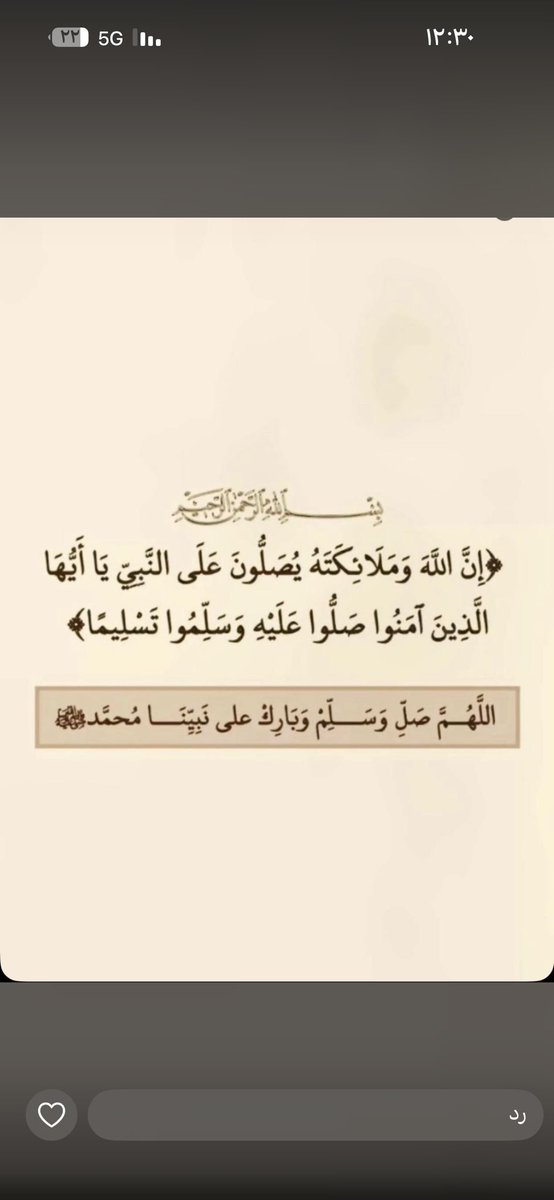 ١٢:٣٠ 5G ٢٢
بِسْمِ اللَّهِ الرَّحْمَٰنِ الرَّحِيمِ
﴿إِنَّ اللَّهَ وَمَلَائِكَتَهُ يُصَلُّونَ عَلَى النَّبِيِّ يَا أَيُّهَا
الَّذِينَ آمَنُوا صَلُّوا عَلَيْهِ وَسَلِّمُوا تَسْلِيمًا﴾
اللَّهُـمَّ صَلِّ وَسَـــلِّمْ وَبَارِكْ على نَبِيِّنَـــا مُحمَّد ﷺ
رد